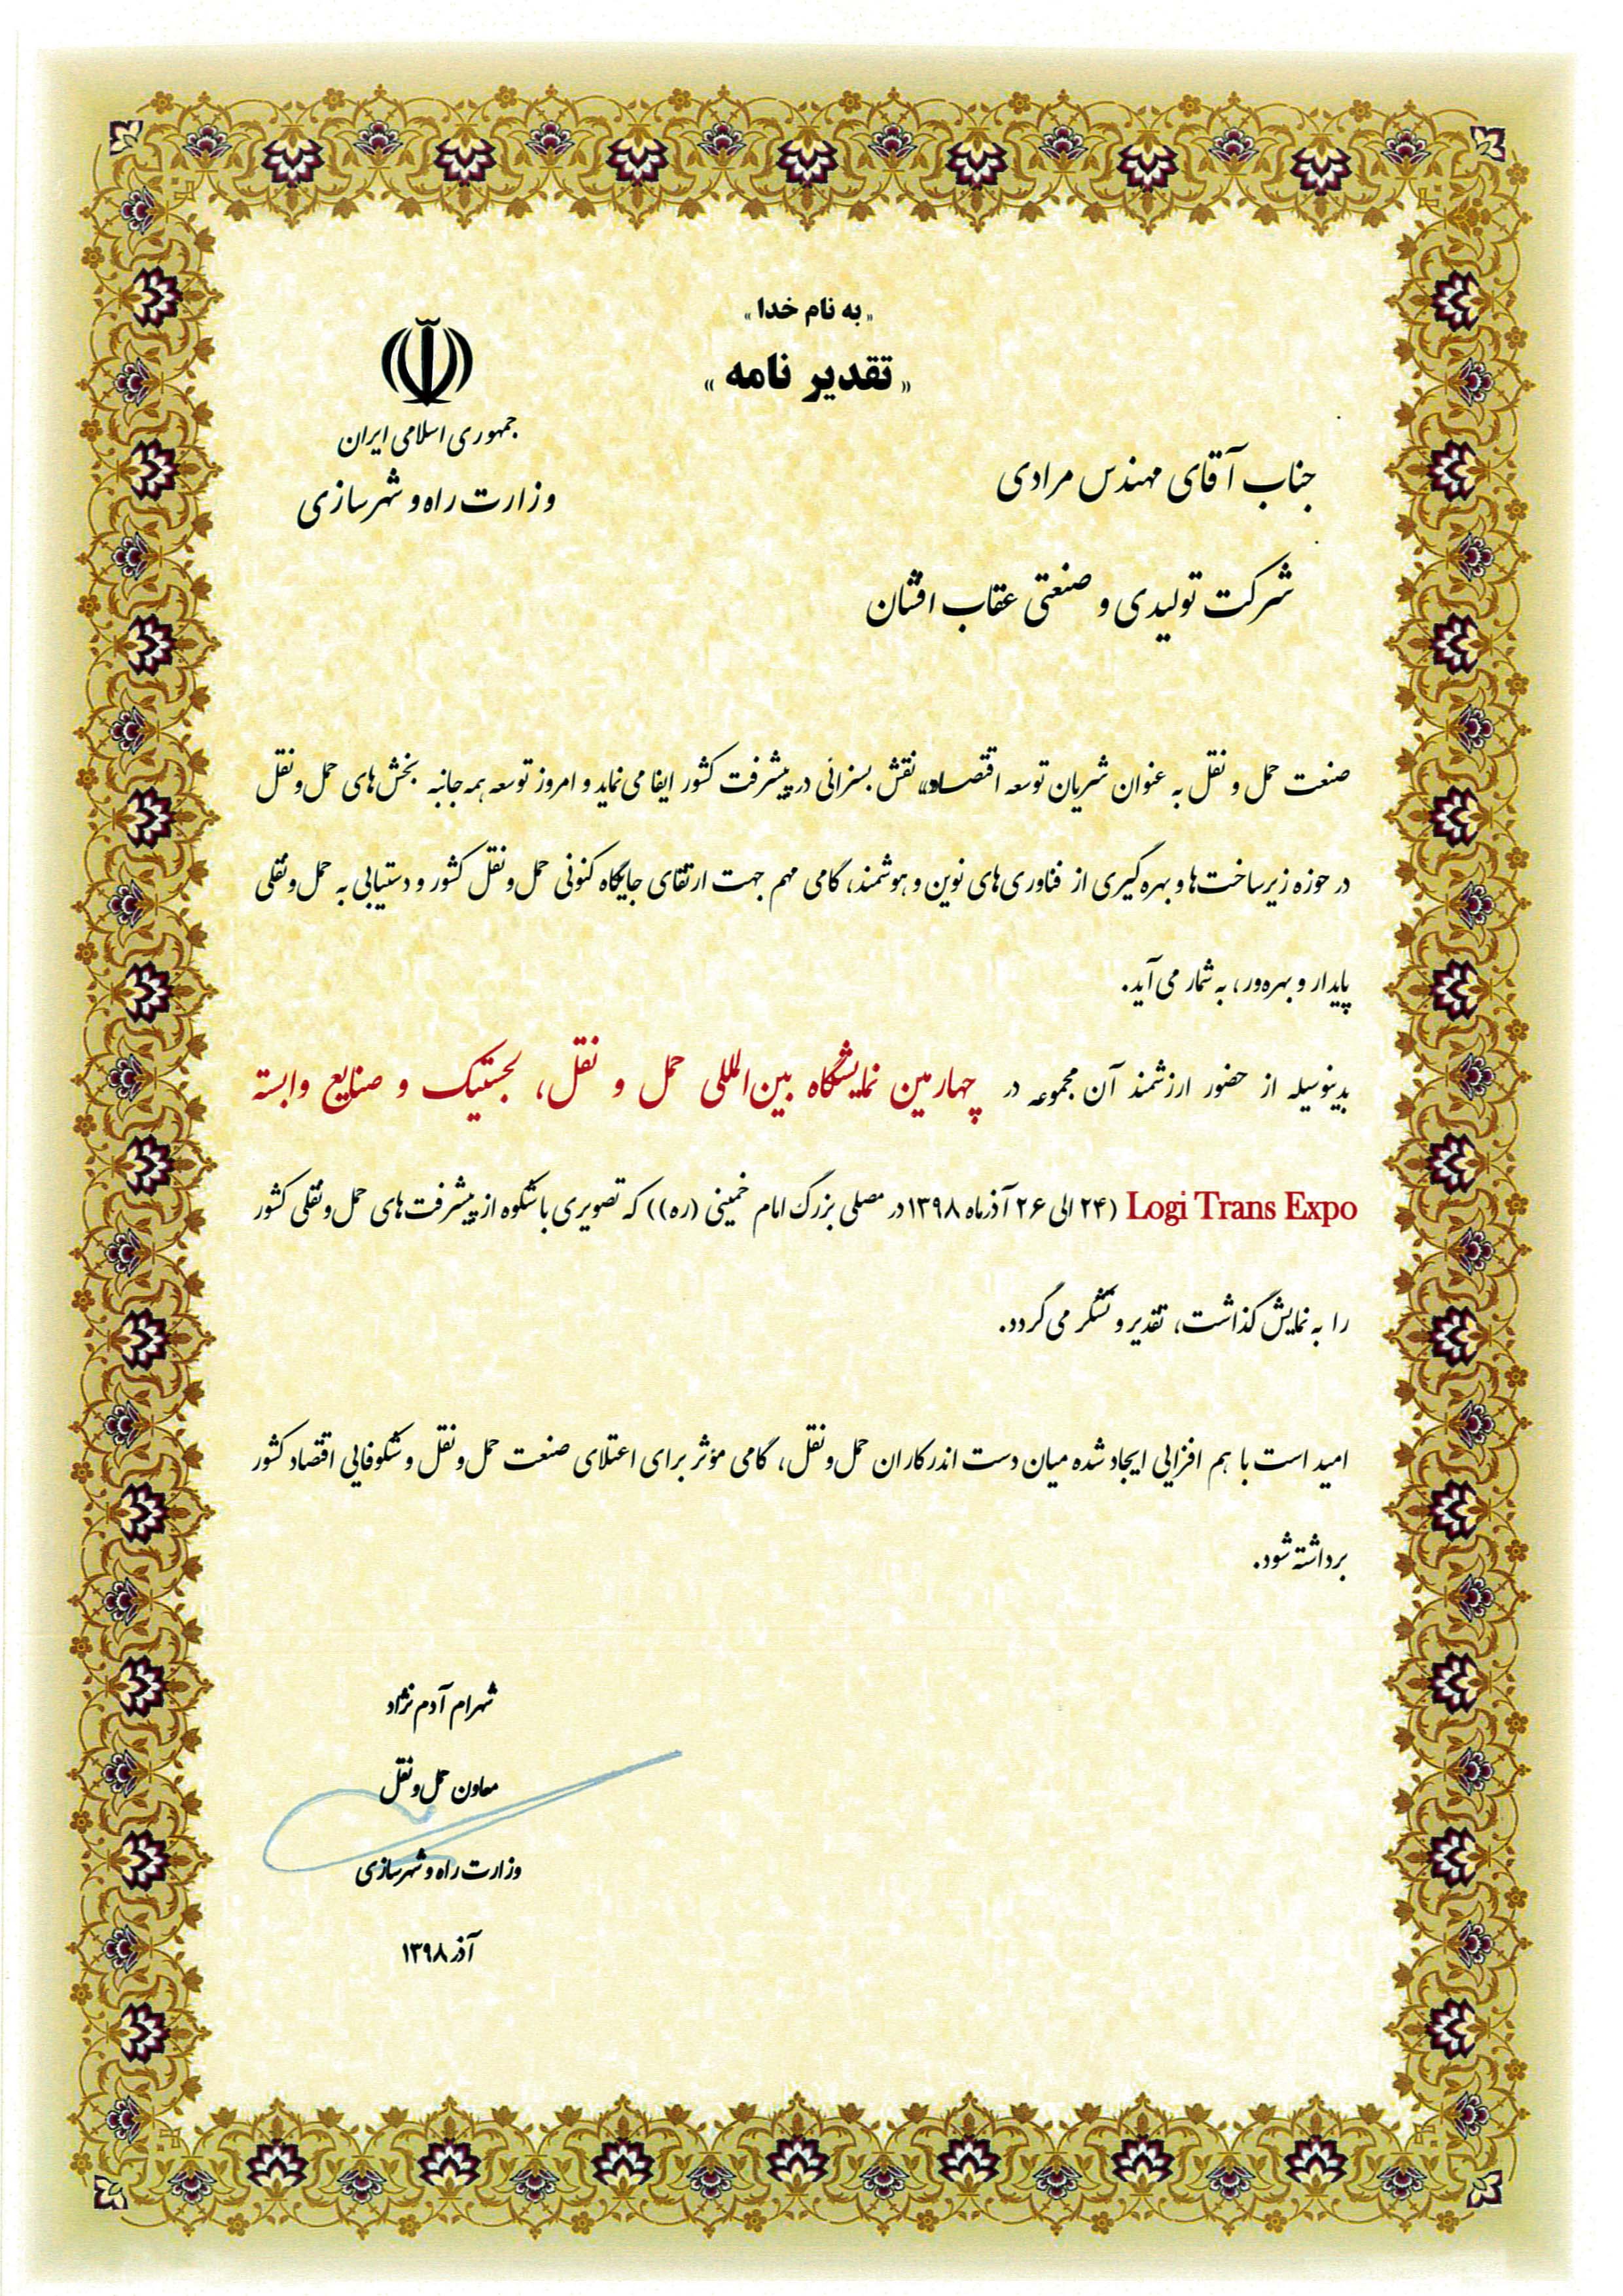 « به نام خدا »
« تقدیر نامه »
جمهوری اسلامی ایران
وزارت راه و شهرسازی
جناب آقای مهندس مرادی
شرکت تولیدی و صنعتی عقاب افشان
صنعت حمل و نقل به عنوان شریان توسعه اقتصادی نقش بسزائی در پیشرفت کشور ایفا می نماید و امروز توسعه همه جانبه بخش های حمل و نقل
در حوزه زیرساخت ها و بهره گیری از فناوری های نوین و هوشمند، گامی مهم جهت ارتقای جایگاه کنونی حمل و نقل کشور و دستیابی به حمل و نقلی
پایدار و بهره ور، به شمار می آید.
بدینوسیله از حضور ارزشمند آن مجموعه در چهارمین نمایشگاه بین المللی حمل و نقل، لجستیک و صنایع وابسته
Logi Trans Expo (۲۴ الی ۲۶ آذرماه ۱۳۹۸ در مصلی بزرگ امام خمینی (ره)) که تصویری باشکوه از پیشرفت های حمل و نقلی کشور
را به نمایش گذاشت، تقدیر و تشکر می گردد.
امید است با هم افزایی ایجاد شده میان دست اندرکاران حمل و نقل، گامی مؤثر برای اعتلای صنعت حمل و نقل و شکوفایی اقتصاد کشور
برداشته شود.
شهرام آدم نژاد
معاون حمل و نقل
وزارت راه و شهرسازی
آذر ۱۳۹۸